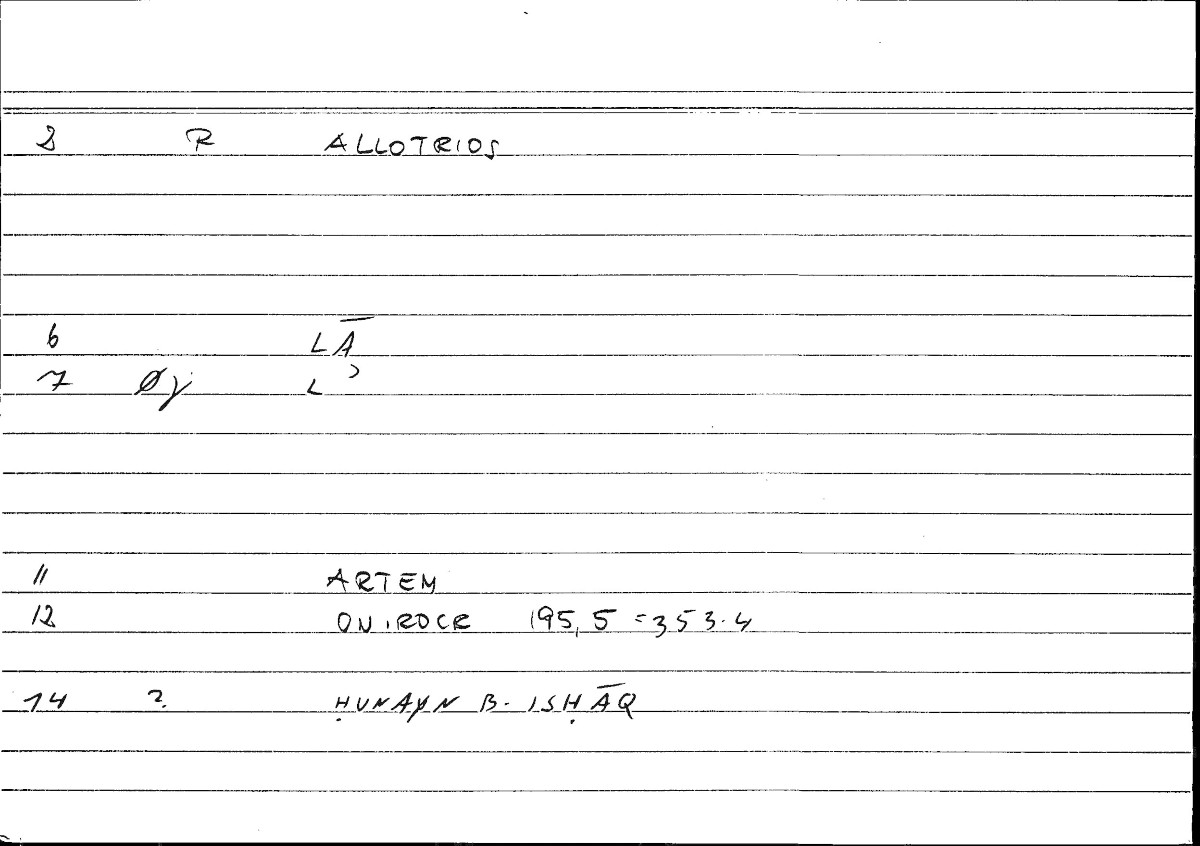 2 R ALLOTRIOS
6 LĀ
7 Øy L ʾ
11 ARTEM
12 ONIROCR 195,5 = 353.4
14 ?. ḤUNAYN B. ISḤĀQ